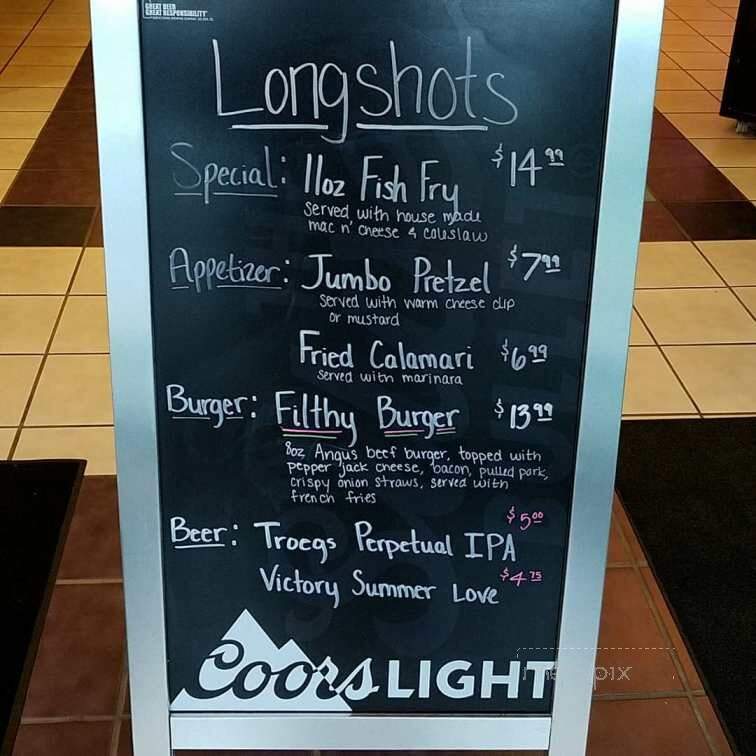 GREAT BEER
GREAT RESPONSIBILITY
Longshots
Special: 11oz Fish Fry $14.99
served with house made
mac n' cheese & couslaw
Appetizer: Jumbo Pretzel $7.99
served with warm cheese dip
or mustard
Fried Calamari $6.99
served with marinara
Burger: Filthy Burger $13.99
8oz Angus beef burger, topped with
pepper jack cheese, bacon, pulled pork,
crispy onion straws, served with
french fries
Beer: Troegs Perpetual IPA $5.00
Victory Summer Love $4.75
Coors LIGHT